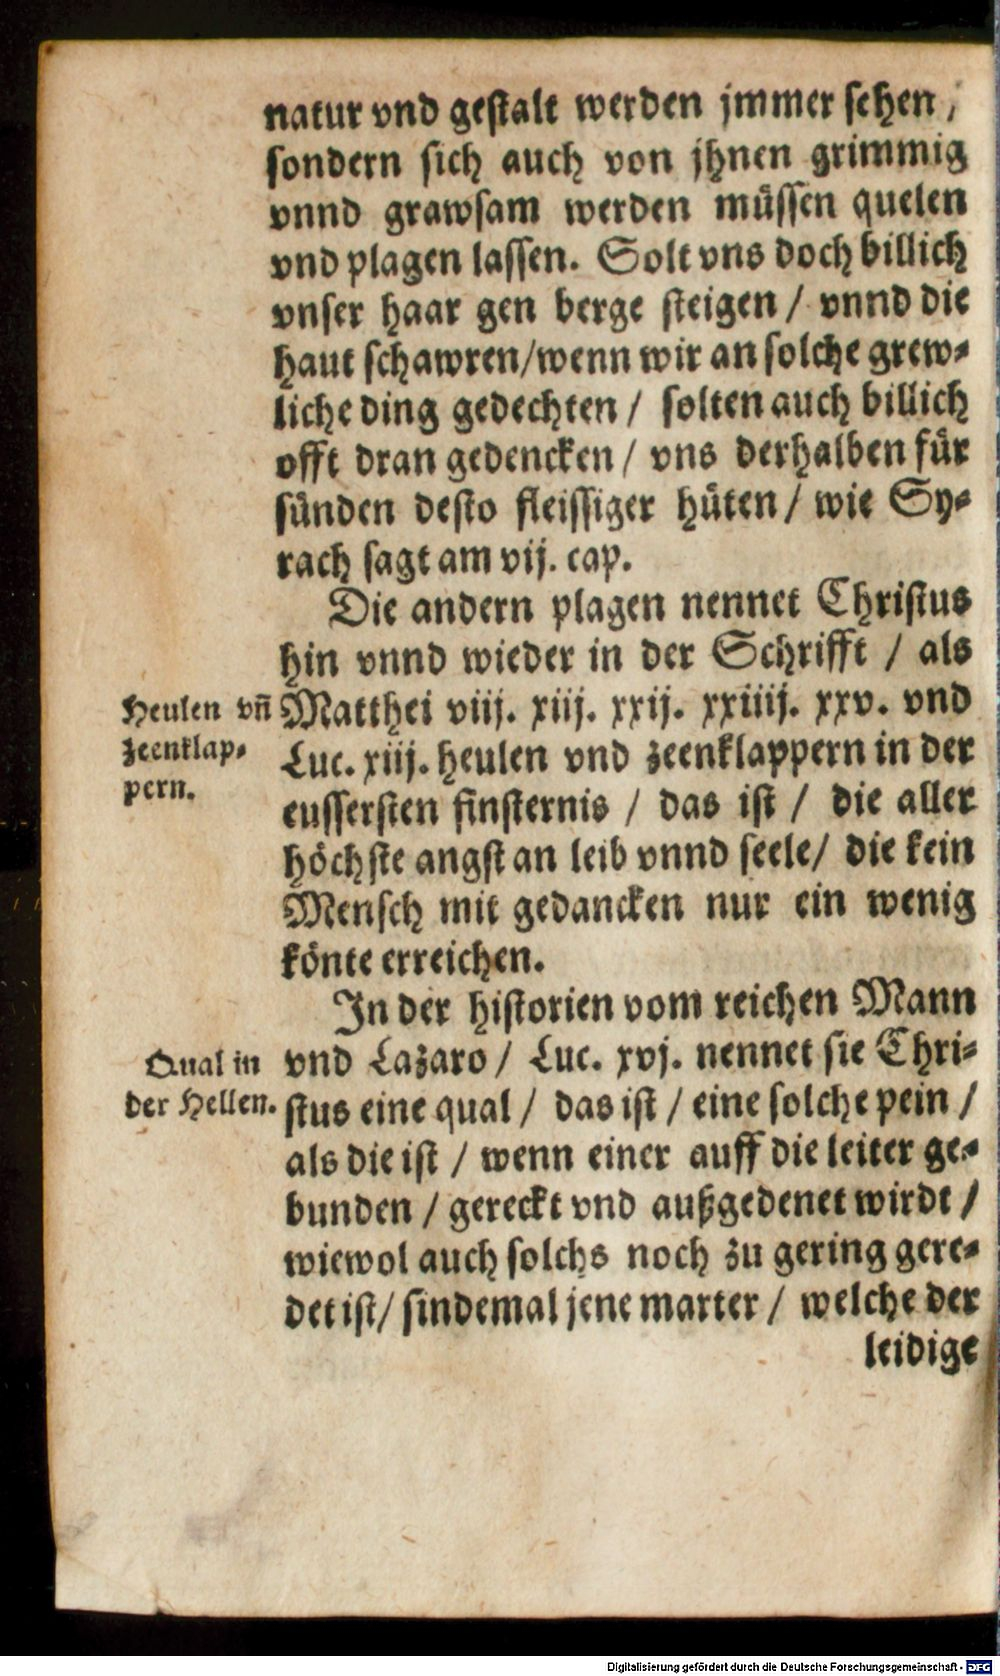 natur vnd gestalt werden jmmer sehen /
sondern sich auch von jhnen grimmig
vnnd grawsam werden müssen quelen
vnd plagen lassen. Solt vns doch billich
vnser haar gen berge steigen / vnnd die
haut schawren/wenn wir an solche grew-
liche ding gedechten / solten auch billich
offt dran gedencken / vns derhalben für
sünden desto fleissiger hüten / wie Sy-
rach sagt am vij. cap.
Die andern plagen nennet Christus
hin vnnd wieder in der Schrifft / als
Matthei viij. xiij. xxij. xxiiij. xxv. vnd
Luc. xiij. heulen vnd zeenklappern in der
eussersten finsternis / das ist / die aller
höchste angst an leib vnnd seele/ die kein
Mensch mit gedancken nur ein wenig
könte erreichen.
Heulen vñ
zeenklap-
pern.
In der historien vom reichen Mann
vnd Lazaro / Luc. xvj. nennet sie Chri-
stus eine qual / das ist / eine solche pein /
als die ist / wenn einer auff die leiter ge-
bunden / gereckt vnd außgedenet wirdt /
wiewol auch solchs noch zu gering gere-
det ist/ sindemal jene marter / welche der
leidige
Qual in
der Hellen.
Digitalisierung gefördert durch die Deutsche Forschungsgemeinschaft - DFG